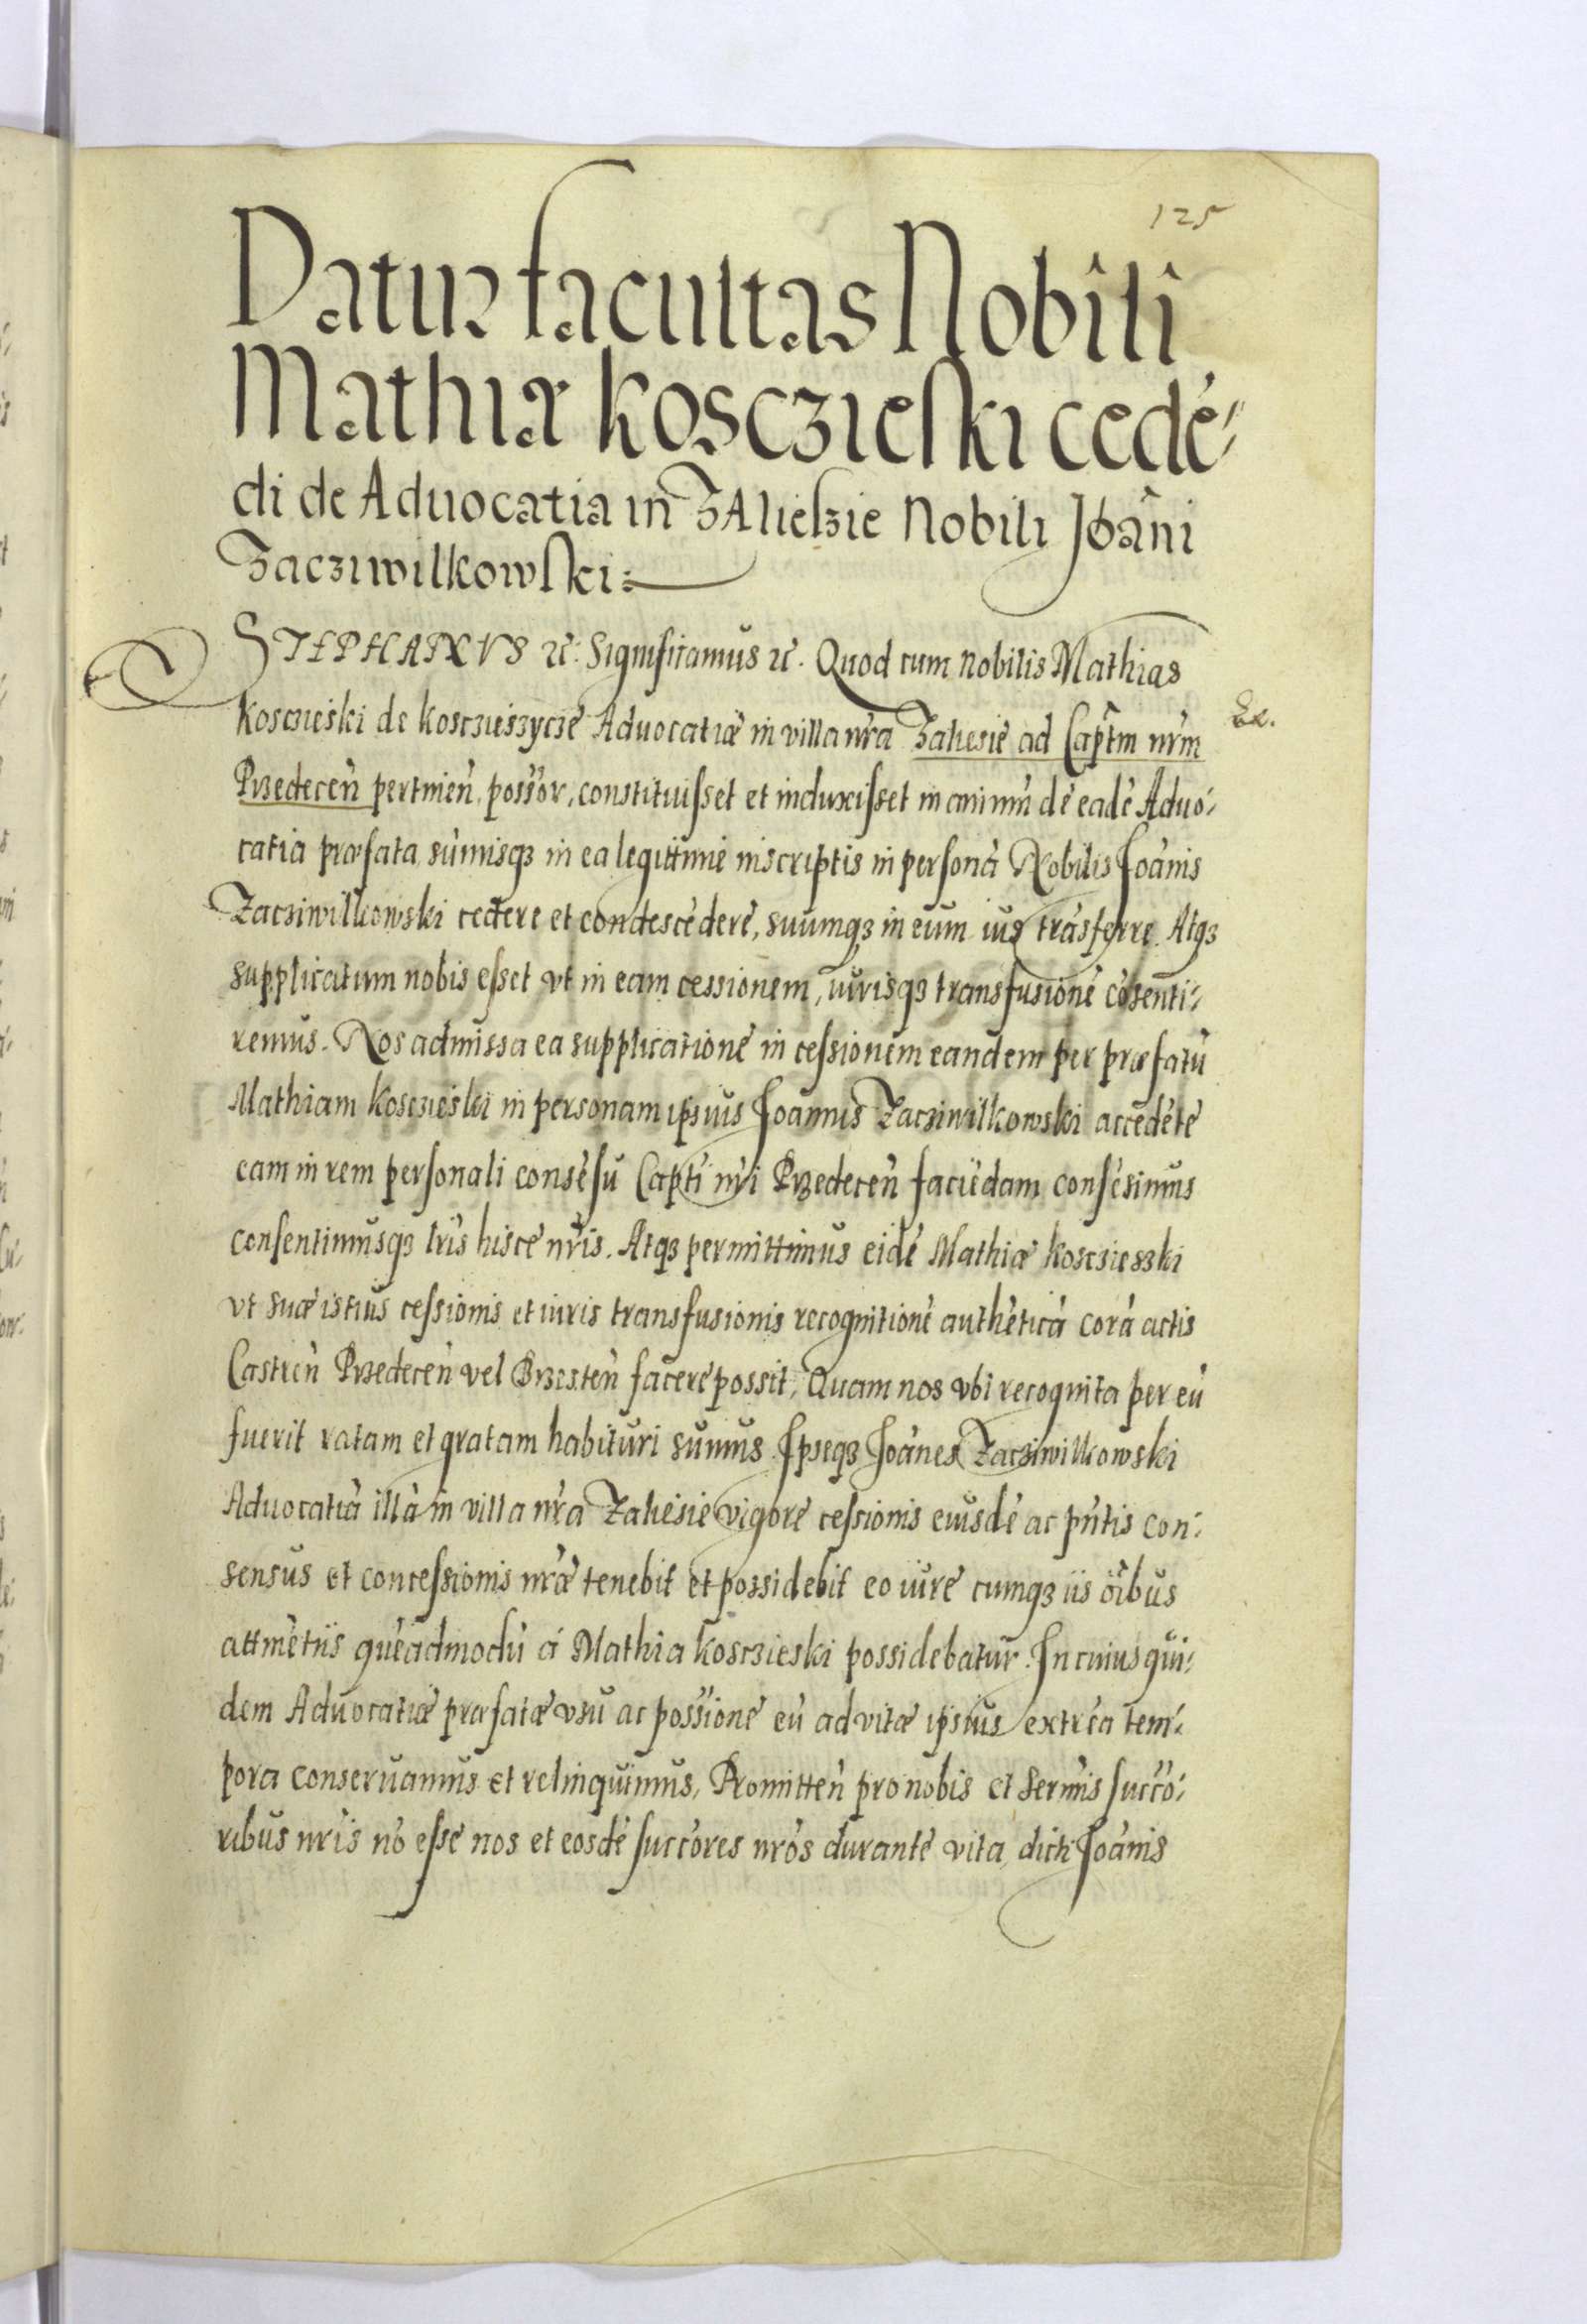 125
Datur facultas Nobili
Mathiæ Kosczieski cedé-
di de Aduocatia in Zalieszie Nobili Joāni
Zacziwilkowski:
STEPHANVS &c: Significamus &c. Quod cum Nobilis Mathias
Kosczieski de Koscziesziczie Aduocatiæ in villa nr̃a Zaliesie ad Cap̃tm nr̃m
Przedecen̄ pertinen̄, possor, constituisset et induxisset in animū dē eadē Aduo-
catia præfata sūmisq3 in ea legittimē inscriptis in personā Nobilis Joānis
Zacziwilkowski cedere et condescēdere, suumq3 in eum ius trāsferre. Atq3
supplicatum nobis esset vt in eam cessionem, iurisq3 transfusionē cōsenti-
remus. Nos admissa ea supplicatione in cessionem eandem per præfatū
Mathiam Kosczieski in personam ipsius Joannis Zacziwilkowski accedēte
eam in rem personali consēsu Capti nr̃i Przedecen̄ faciēdam consēsimus
consentimusq3 lr̃is hisce nr̃is. Atq3 permittimus eidē Mathiæ Koscziesski
vt suæ istius cessionis et iuris transfusionis recognitionē authēticā corā actis
Castren̄ Przedecen̄ vel Brzesten̄ facere possit, Quam nos vbi recognita per eū
fuerit ratam et gratam habituri sumus. Ipseq3 Joānes Zacziwilkowski
Aduocatiā illā in villa nr̃a Zaliesie vigore cessionis eiusdē ac pn̄tis con-
sensus et concessionis nr̃æ tenebit et possidebit eo iure cumq3 iis oībus
attinētiis quēadmodū á Mathia Kosczieski possidebatur. In cuius qui-
dem Aduocatiæ præfatæ vsu ac possione eū ad vitæ ipsius extrēa tem-
pora conseruamus et relinquimus, Promitten̄ pro nobis et Sermis succo-
ribus nr̃is nō esse nos et eosdē succores nr̃os durante vita dicti Joānis